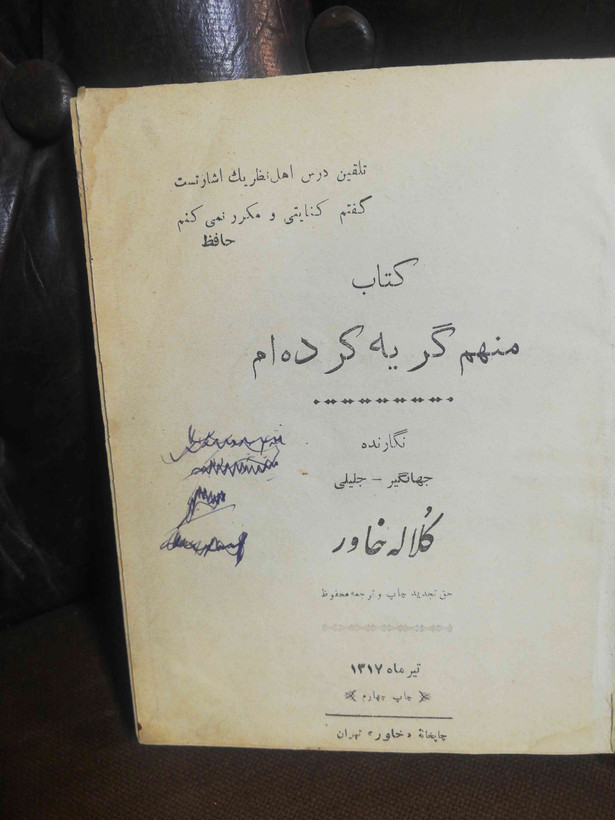 تلقین درس اهل نظر یك اشارتست
گفتم کنایتی و مکرر نمی کنم
حافظ
کتاب
منهم گریه کرده ام
نگارنده
جهانگیر - جلیلی
کُلاله خاور
حق تجدید چاپ و ترجمه محفوظ
تیر ماه ۱۳۱۷
چاپ چهارم
چاپخانهٔ «خاور» تهران